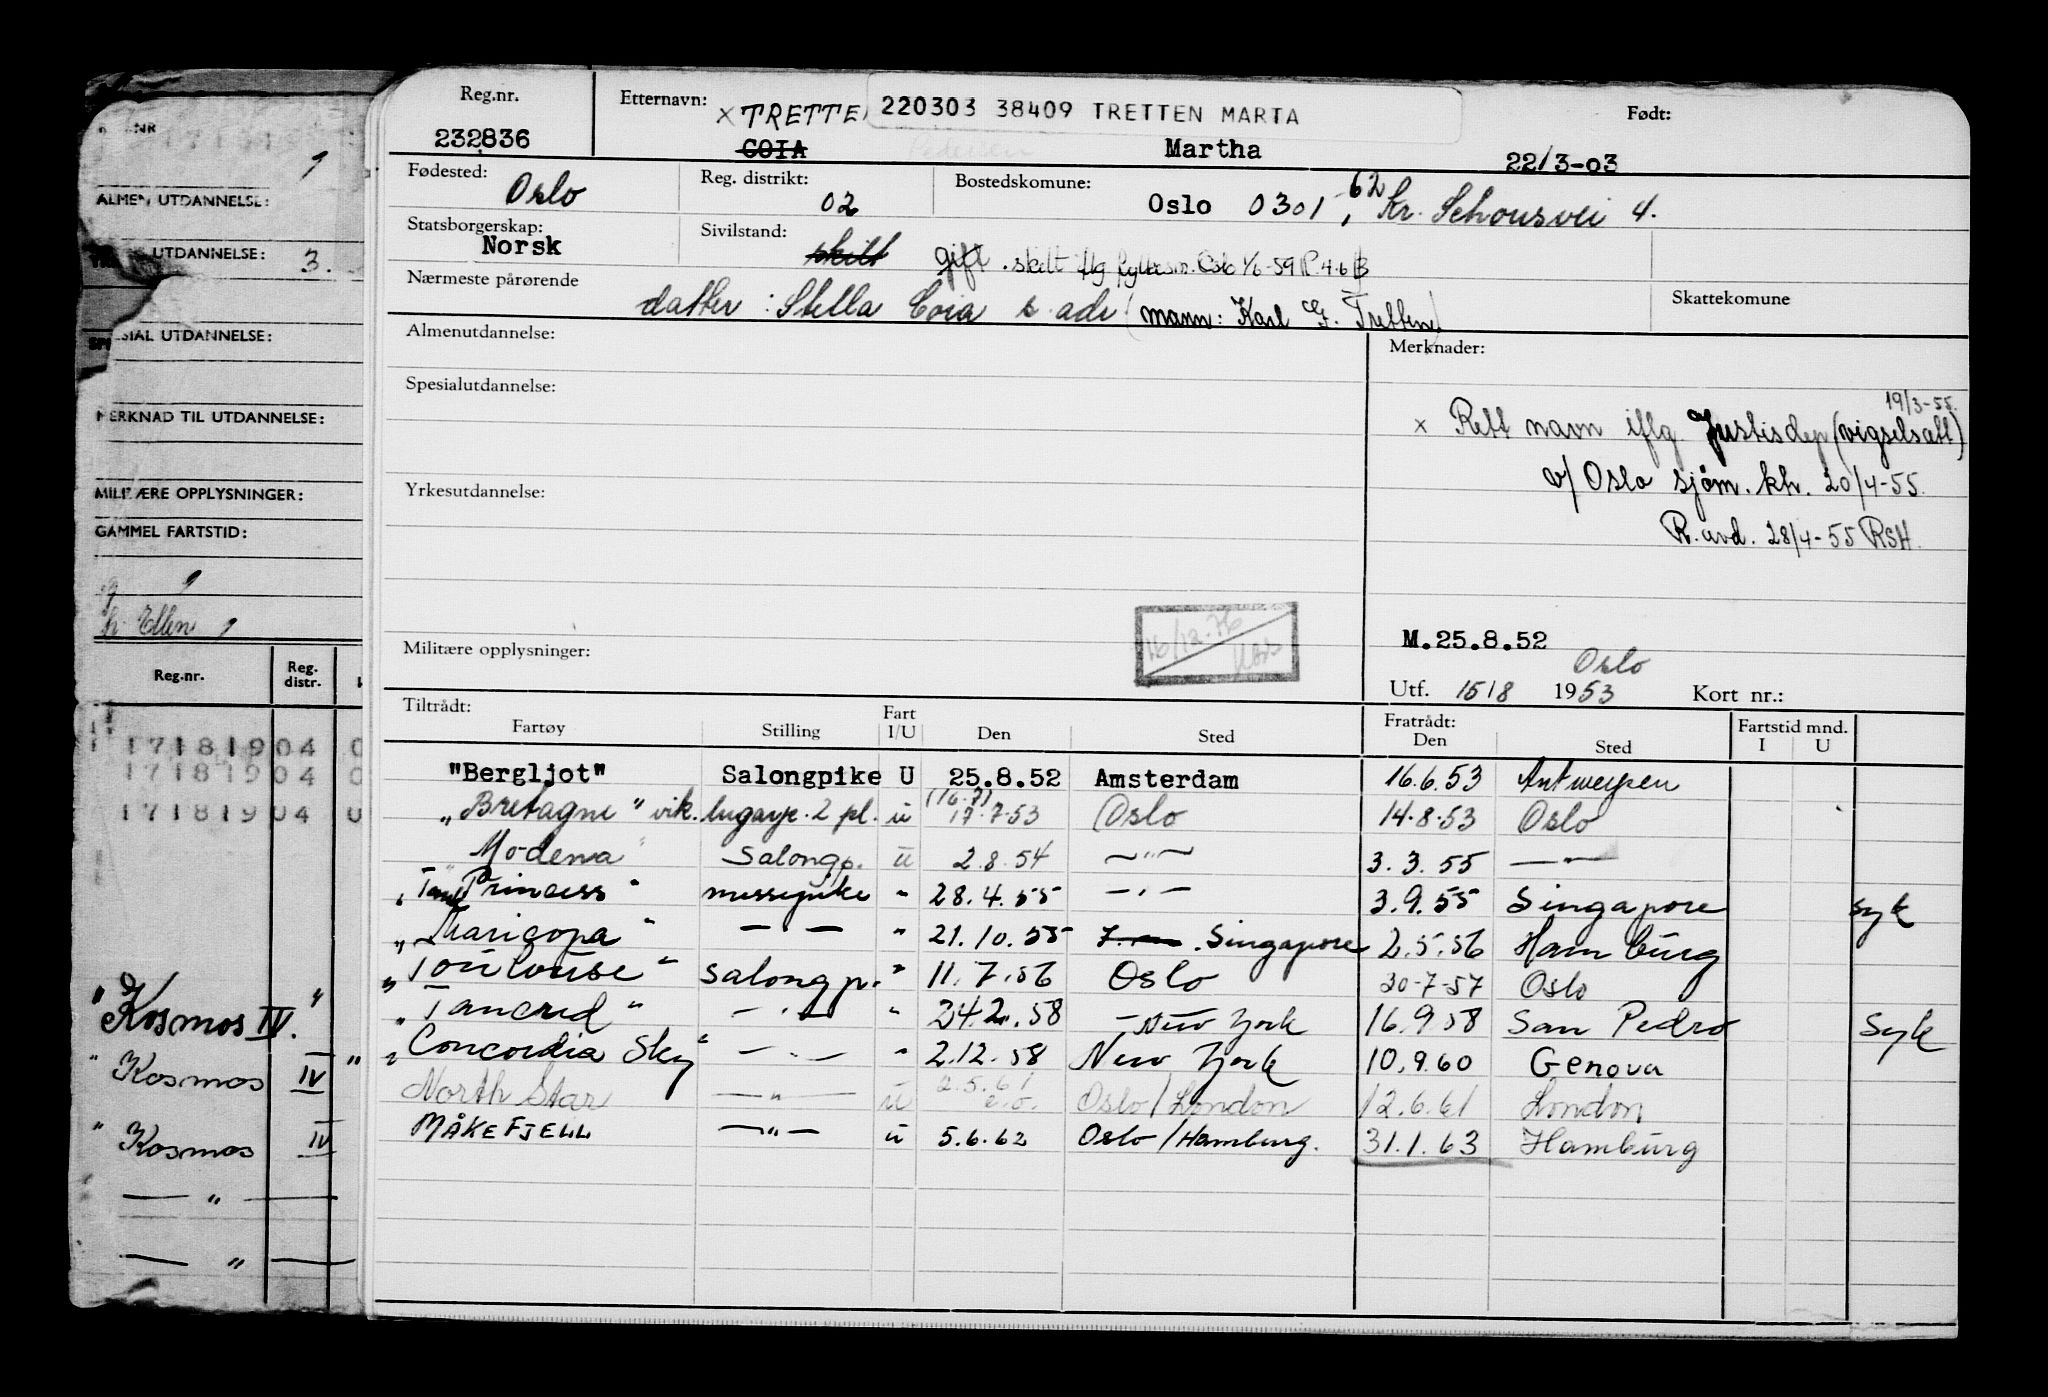 Reg.nr. Etternavn: Født:
× TRETTE 220303 38409 TRETTEN MARTA
232836 COIA Martha 22/3-03
Fødested: Oslo Reg. distrikt: 02 Bostedskomune: Oslo 0301, 62 Kr. Schousvei 4.
Statsborgerskap: Norsk Sivilstand: skilt gift. skilt Oslo 1/6-59
Nærmeste pårørende Skattekomune
datter: Stella Coia s. adr (mann: Karl Tretten)
Almenutdannelse: Merknader:
Spesialutdannelse:
19/3-55.
× Rett navn iflg. Justisdep (vigselsatt)
v/ Oslo sjøm. kh. 20/4-55.
Yrkesutdannelse:
R. avd. 28/4-55 RSH.
16/12-76
M.25.8.52
Militære opplysninger: Oslo
Utf. 15/8 1953 Kort nr.:
Tiltrådt: Fratrådt: Fartstid mnd.
Fartøy Stilling Fart I/U Den Sted Den Sted I U
"Bergljot" Salongpike U 25.8.52 Amsterdam 16.6.53 Antwerpen
"Bretagne" vik. lugarp. 2 pl. u (16.7) 17.7.53 Oslo 14.8.53 Oslo
"Modena" Salongp. u 2.8.54 —"— 3.3.55 —"—
" Princess" messepike " 28.4.55 —"— 3.9.55 Singapore syk
"Maricopa" — — " 21.10.55 Singapore 2.5.56 Hamburg
"Toulouse" salongp. " 11.7.56 Oslo 30-7-57 Oslo
"Tancred" —"— " 24.2.58 New York 16.9.58 San Pedro Syk
"Concordia Sky" —"— " 2.12.58 New York 10.9.60 Genova
North Star —"— u 2.5.61 Oslo/London 12.6.61 London
MÅKEFJELL —"— u 5.6.62 Oslo/Hamburg. 31.1.63 Hamburg
ALMEN UTDANNELSE:
UTDANNELSE: 3.
UTDANNELSE:
MERKNAD TIL UTDANNELSE:
MILITÆRE OPPLYSNINGER:
GAMMEL FARTSTID:
Ellen
Reg.nr. Reg. distr.
171819 04 0
171819 04 0
171819 04 0
"Kosmos IV."
" Kosmos IV "
" Kosmos IV
— " —
— " —